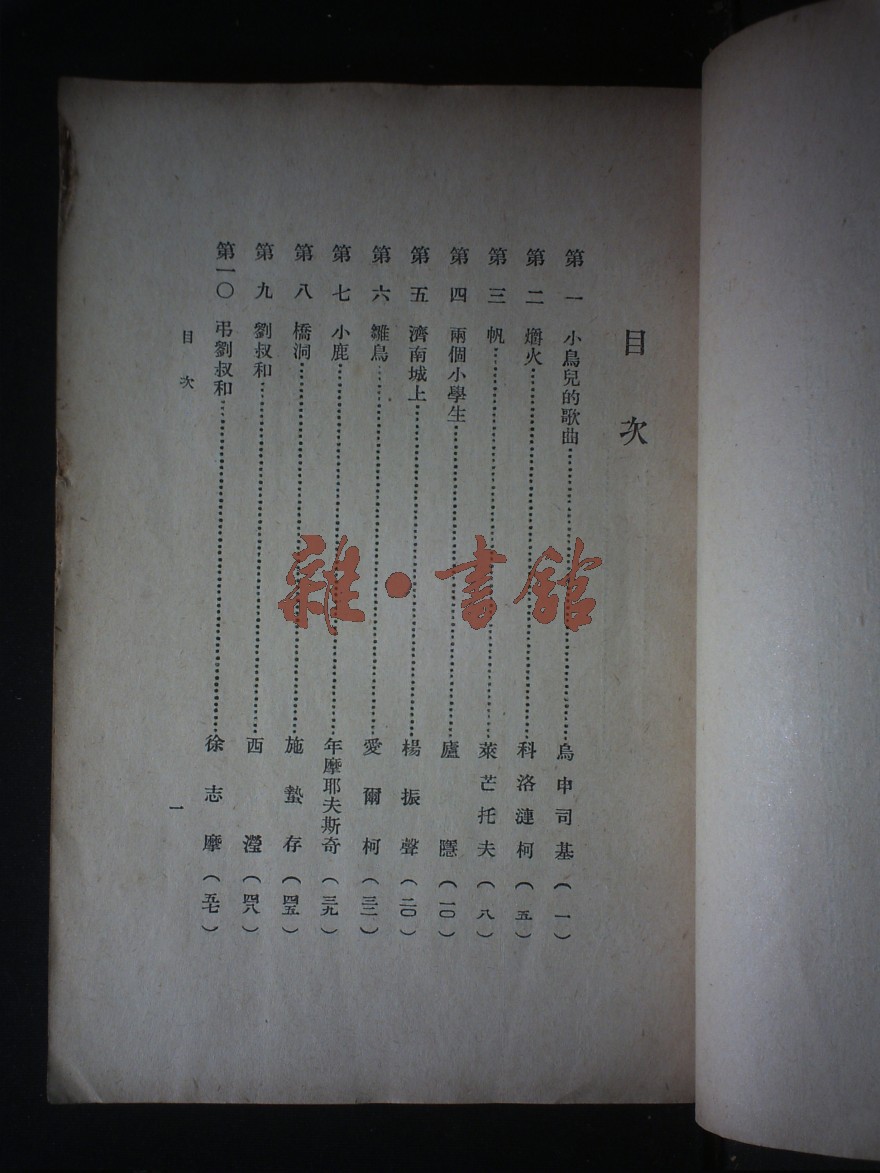 目次
第一 小鳥兒的歌曲……烏申司基(一)
第二 爝火……科洛漣柯(五)
第三 帆……萊芒托夫(八)
第四 兩個小學生……廬隱(一〇)
第五 濟南城上……楊振聲(二〇)
第六 雛鳥……愛爾柯(三二)
第七 小鹿……年摩耶夫斯奇(三九)
第八 橋洞……施蟄存(四五)
第九 劉叔和……西瀅(四八)
第一〇 弔劉叔和……徐志摩(五七)
目次
一
雜·書館